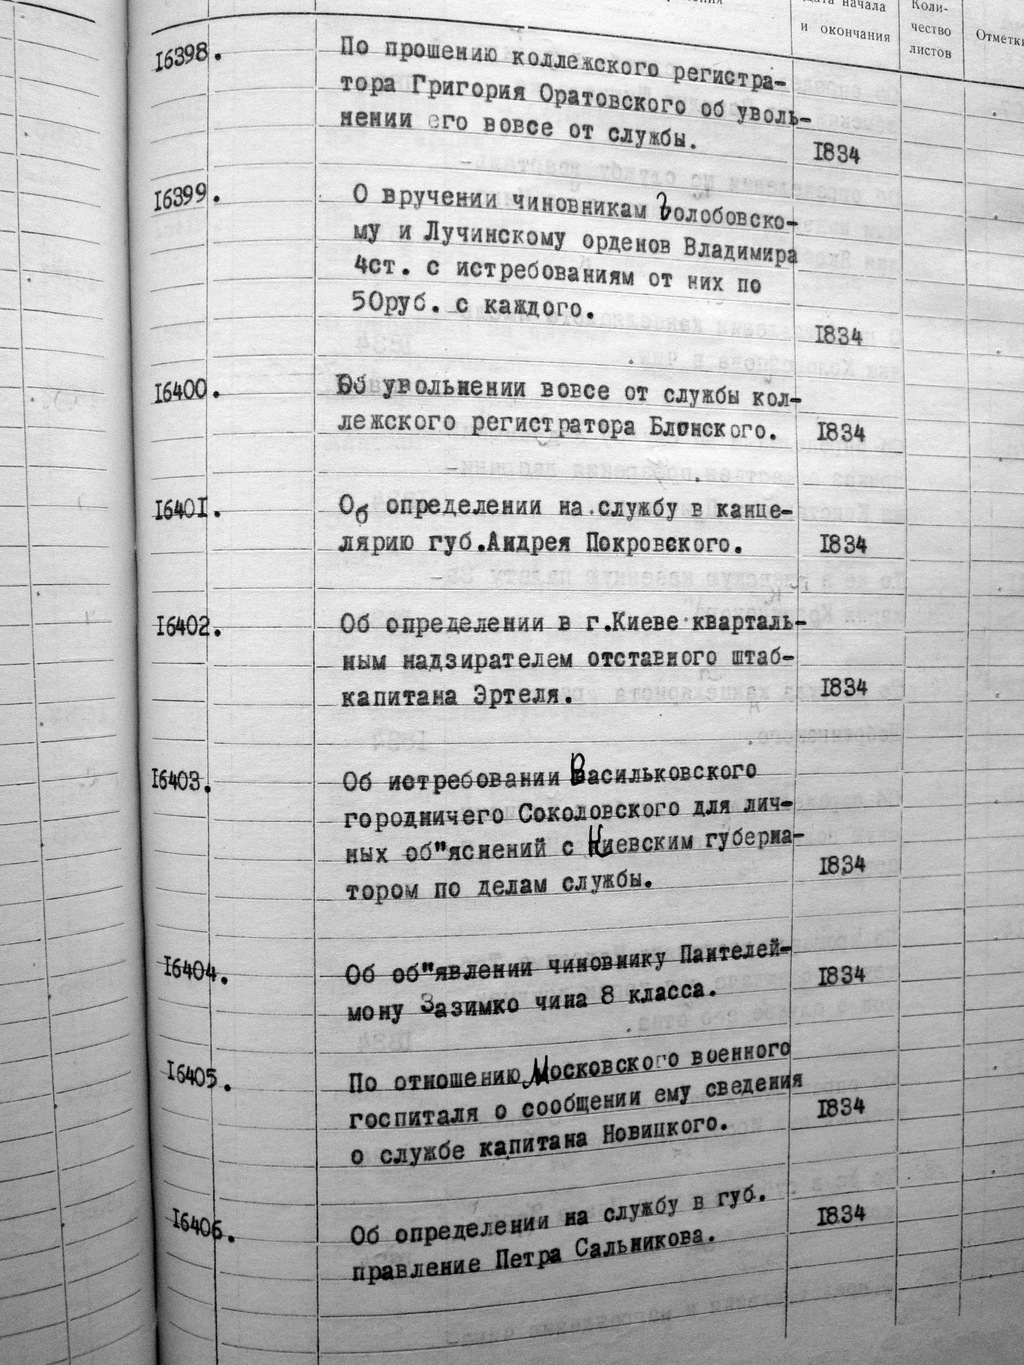 Дата начала
и окончания
Коли-
чество
листов
Отметки
16398.
По прошению коллежского регистра-
тора Григория Оратовского об уволь-
нении его вовсе от службы.
1834
16399.
О вручении чиновникам Голобовско-
му и Лучинскому орденов Владимира
4ст. с истребованиям от них по
50руб. с каждого.
1834
16400.
Об увольнении вовсе от службы кол-
лежского регистратора Блонского.
1834
16401.
Об определении на службу в канце-
лярию губ.Андрея Покровского.
1834
16402.
Об определении в г.Киеве кварталь-
ным надзирателем отставного штаб-
капитана Эртеля.
1834
16403.
Об истребовании Васильковского
городничего Соколовского для лич-
ных об"яснений с Киевским губерна-
тором по делам службы.
1834
16404.
Об об"явлении чиновнику Пантелей-
мону Зазимко чина 8 класса.
1834
16405.
По отношению Московского военного
госпиталя о сообщении ему сведения
о службе капитана Новицкого.
1834
16406.
Об определении на службу в губ.
правление Петра Сальникова.
1834